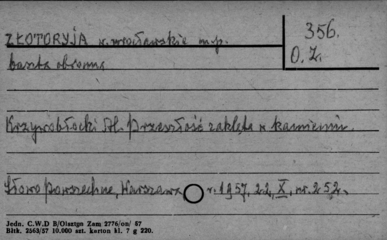 ZŁOTORYJA w. wrocławskie m.p.
356.
baszta obronna
O.Z.
Krzywobłocki Al. Przeszłość zaklęta w kamieniu.
Słowo Powszechne, Warszawa r. 1957, 22, X, nr. 252.
Jedn. C.W.D B/Olsztyn Zam 2776/on/ 57
Bltk. 2563/57 10.000 szt. karton kl. 7 g 220.